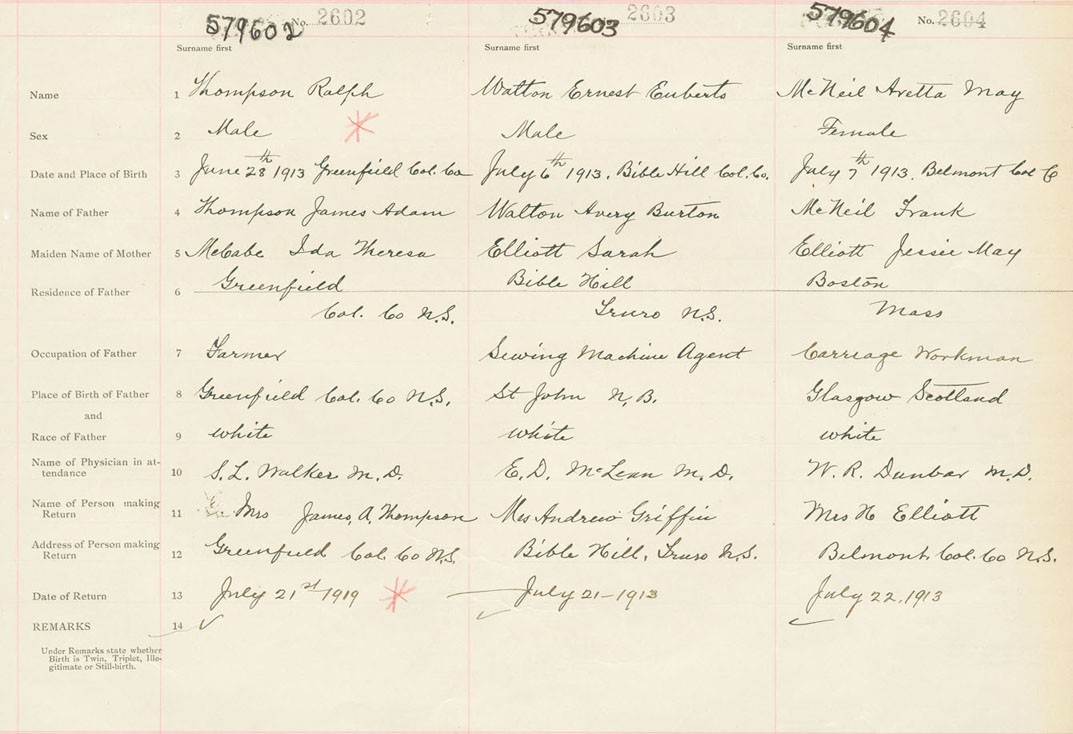 579602 No. 2602 579603 2603 579604 No. 2604
Surname first Surname first Surname first
Name 1 Thompson Ralph Walton Ernest Euberts McNeil Aretta May
Sex 2 Male Male Female
Date and Place of Birth 3 June 28th 1913 Greenfield Col. Co July 6th 1913. Bible Hill Col. Co. July 7th 1913. Belmont Col C
Name of Father 4 Thompson James Adam Walton Avery Burton McNeil Frank
Maiden Name of Mother 5 McCabe Ida Theresa Elliott Sarah Elliott Jessie May
Residence of Father 6 Greenfield Bible Hill Boston
Col. Co N.S. Truro N.S. Mass
Occupation of Father 7 Farmer Sewing Machine Agent Carriage Workman
Place of Birth of Father 8 Greenfield Col. Co N.S. St John N.B. Glasgow Scotland
and
Race of Father 9 white white white
Name of Physician in at-
tendance 10 S. L. Walker M.D. E. D. McLean M.D. W. R. Dunbar M.D.
Name of Person making
Return 11 Mrs James A. Thompson Mrs Andrew Griffin Mrs H Elliott
Address of Person making
Return 12 Greenfield Col. Co N.S. Bible Hill, Truro N.S. Belmont Col. Co N.S.
Date of Return 13 July 21st 1919 July 21-1913 July 22, 1913
REMARKS 14
Under Remarks state whether
Birth is Twin, Triplet, Ille-
gitimate or Still-birth.